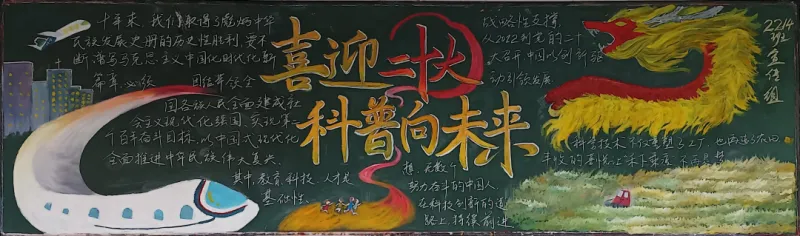 十年来，我们取得了彪炳中华
民族发展史册的历史性胜利，要不
断谱写马克思主义中国化时代化新
篇章，必须 团结带领全
国各族人民全面建成社
会主义现代化强国，实现第二
个百年奋斗目标，以中国式现代化
全面推进中华民族伟大复兴。
其中，教育、科技、人才是
基础性、
战略性支撑，
从2012到党的二十
大召开中国以创新驱
动引领发展
喜迎二十大
科普向未来
想，无数个
努力奋斗的中国人，
在科技创新的道
路上，持续前进
科学技术不仅重塑了工厂，也再造了农田
2214
宣传组